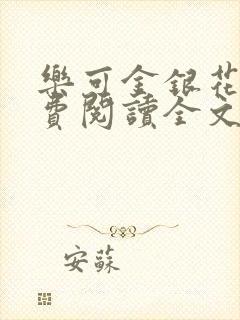 樂可金銀花
費閱讀全文
安蘇